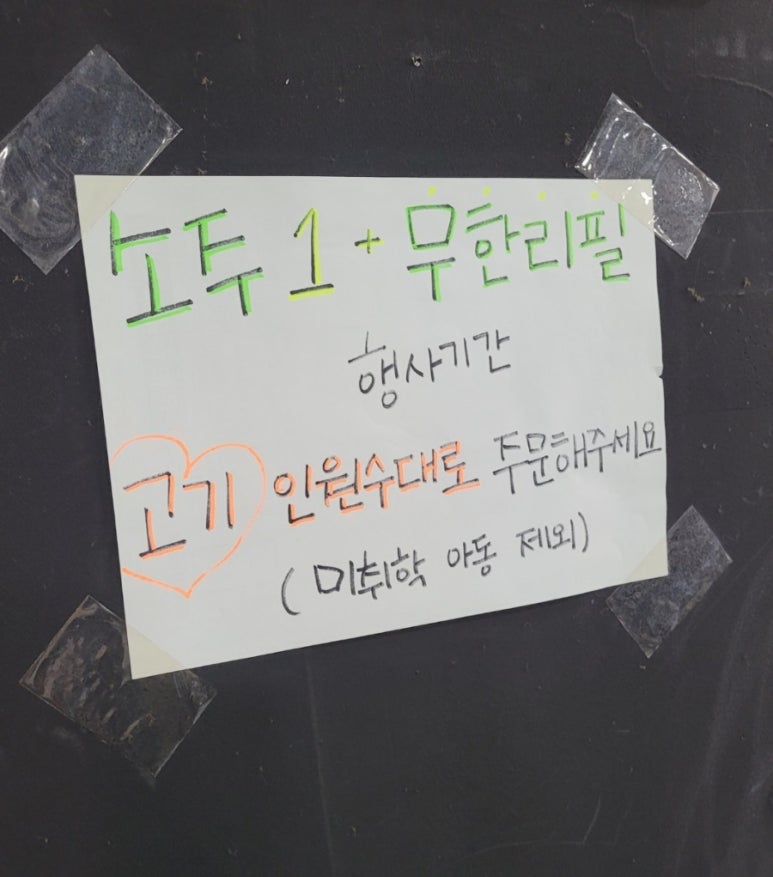 소주 1 + 무한리필
행사기간
고기 인원수대로 주문해주세요
( 미취학 아동 제외)